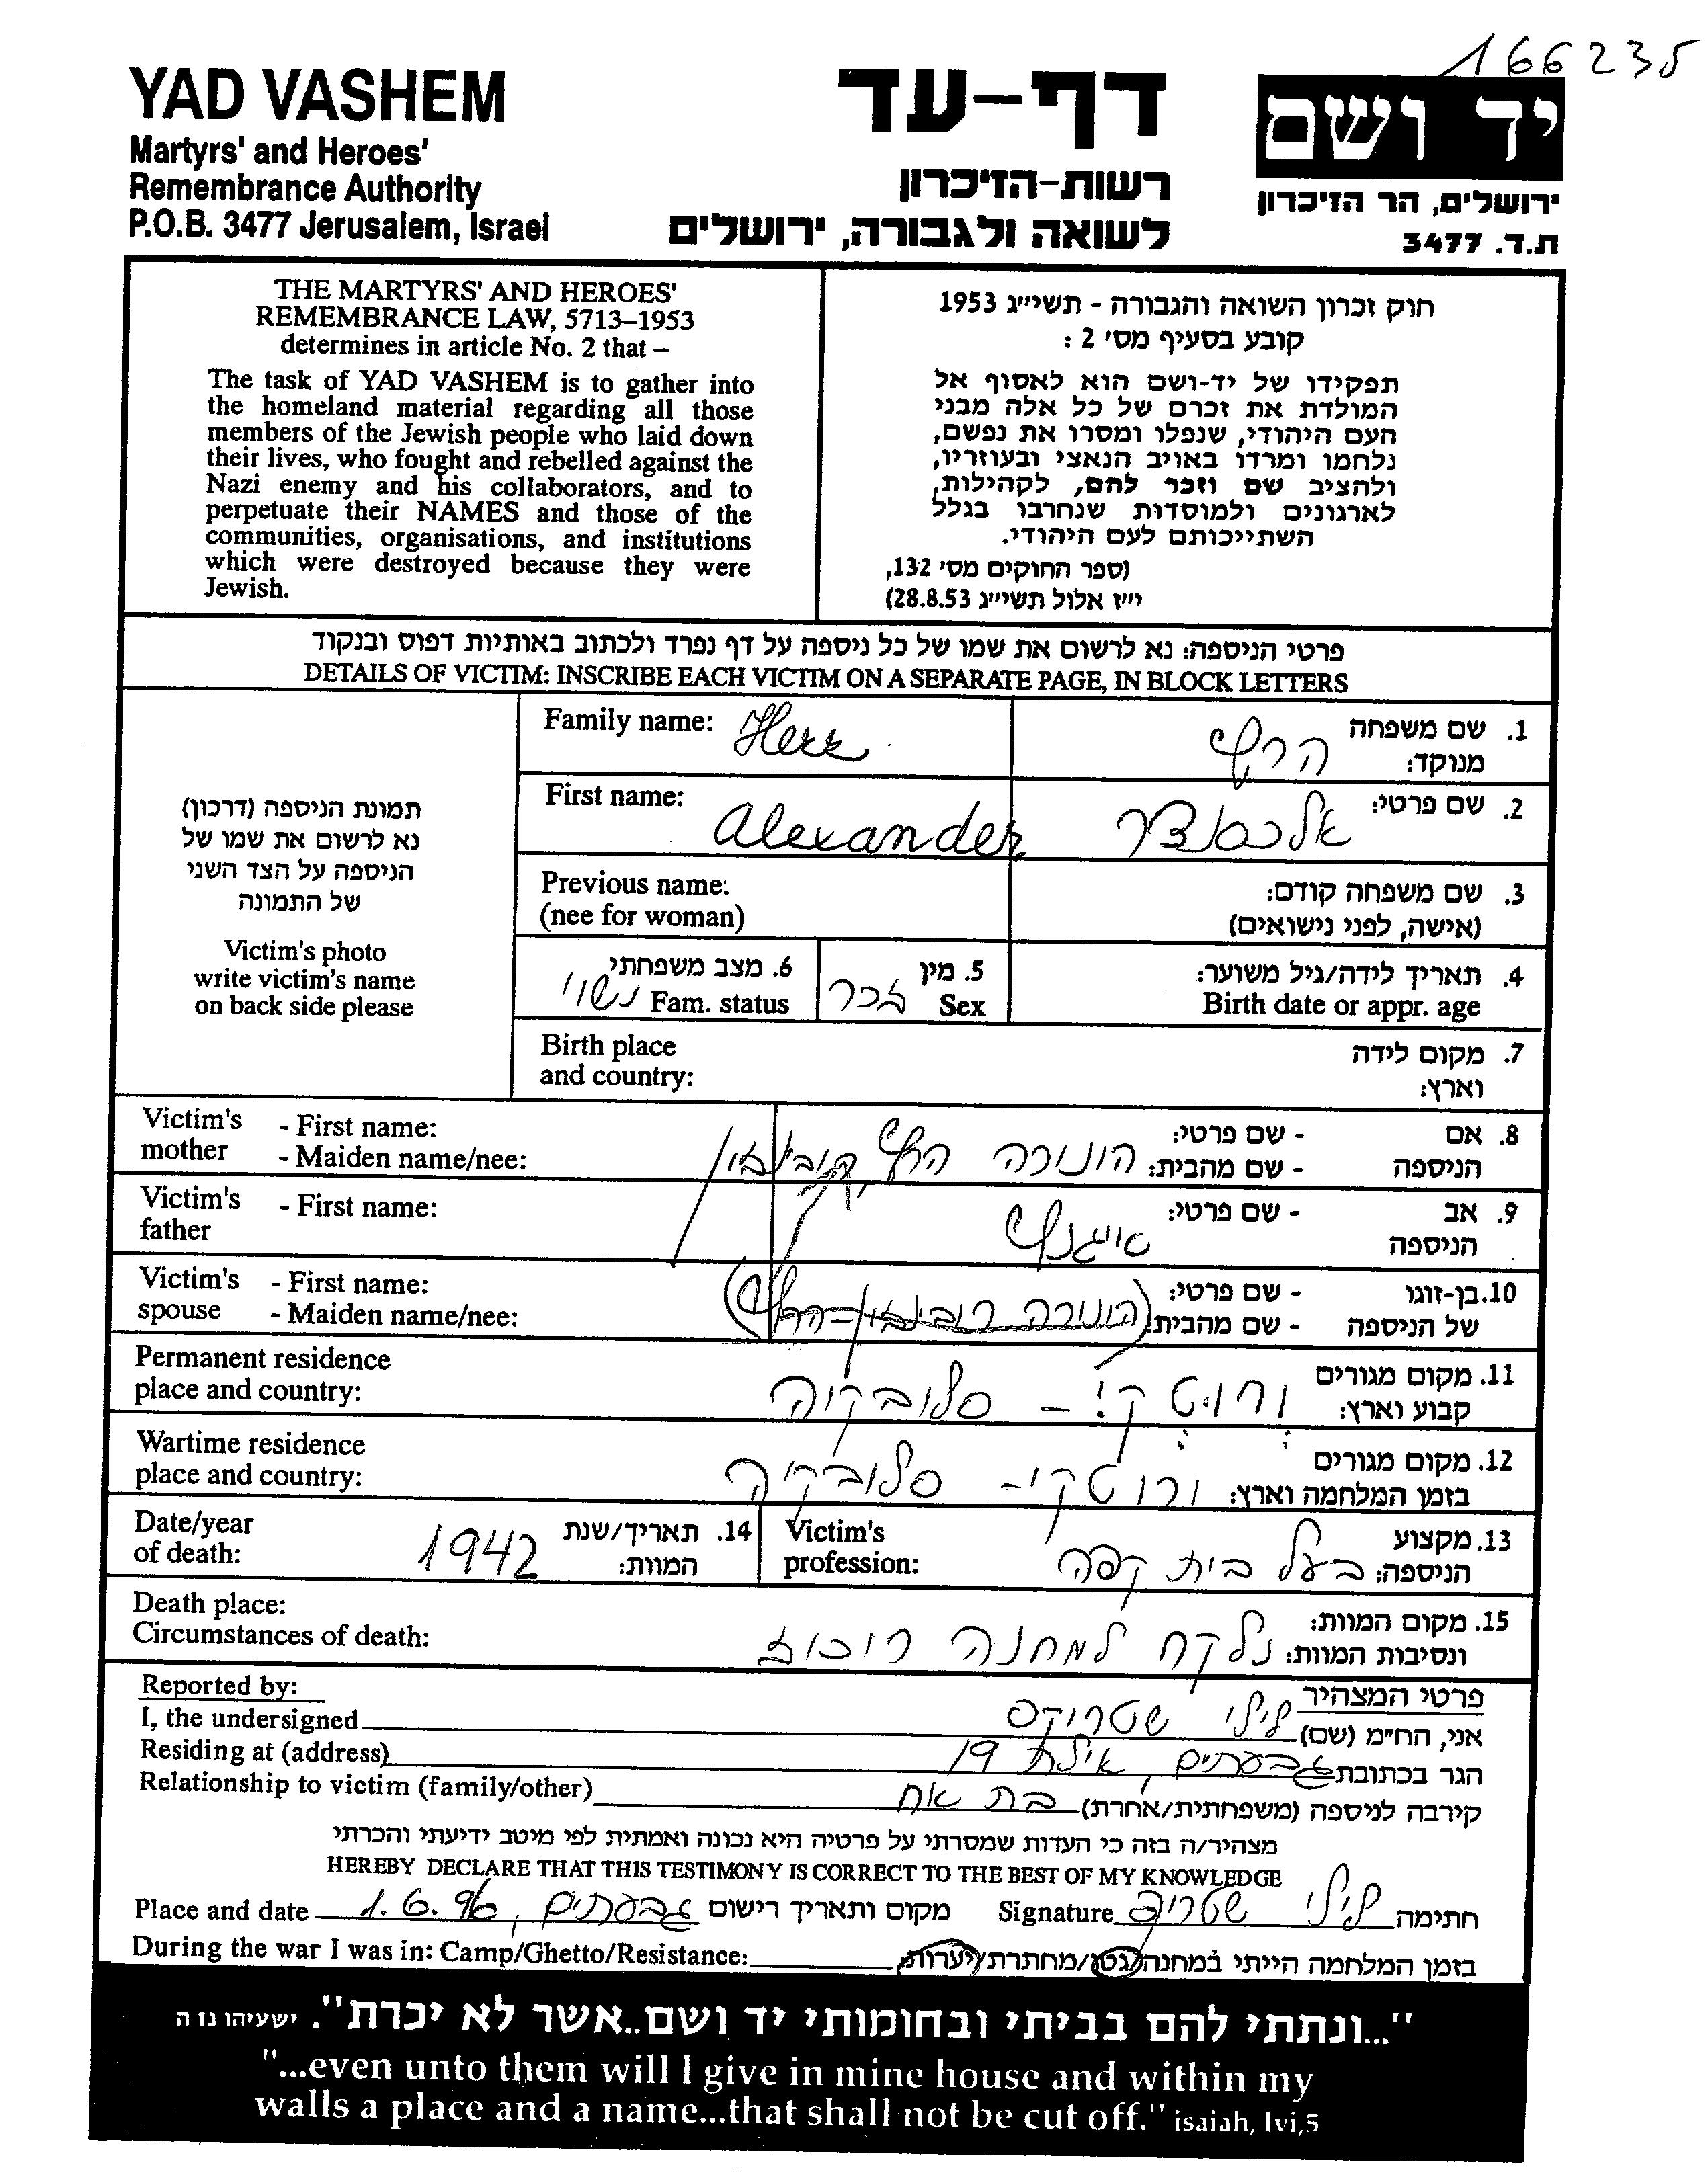 166235
YAD VASHEM
Martyrs' and Heroes'
Remembrance Authority
P.O.B. 3477 Jerusalem, Israel
דף-עד
רשות-הזיכרון
לשואה ולגבורה, ירושלים
יד ושם
ירושלים, הר הזיכרון
ת.ד. 3477
THE MARTYRS' AND HEROES'
REMEMBRANCE LAW, 5713–1953
determines in article No. 2 that –
The task of YAD VASHEM is to gather into
the homeland material regarding all those
members of the Jewish people who laid down
their lives, who fought and rebelled against the
Nazi enemy and his collaborators, and to
perpetuate their NAMES and those of the
communities, organisations, and institutions
which were destroyed because they were
Jewish.
חוק זכרון השואה והגבורה - תשי״ג 1953
קובע בסעיף מס׳ 2 :
תפקידו של יד-ושם הוא לאסוף אל
המולדת את זכרם של כל אלה מבני
העם היהודי, שנפלו ומסרו את נפשם,
נלחמו ומרדו באויב הנאצי ובעוזריו,
ולהציב שם וזכר להם, לקהילות,
לארגונים ולמוסדות שנחרבו בגלל
השתייכותם לעם היהודי.
(ספר החוקים מס׳ 132,
י״ז אלול תשי״ג 28.8.53)
פרטי הניספה: נא לרשום את שמו של כל ניספה על דף נפרד ולכתוב באותיות דפוס ובנקוד
DETAILS OF VICTIM: INSCRIBE EACH VICTIM ON A SEPARATE PAGE, IN BLOCK LETTERS
תמונת הניספה (דרכון)
נא לרשום את שמו של
הניספה על הצד השני
של התמונה
Victim's photo
write victim's name
on back side please
Family name: Herz
1. שם משפחה
מנוקד: הרץ
First name: Alexander
2. שם פרטי: אלכסנדר
Previous name:
(nee for woman)
3. שם משפחה קודם:
(אישה, לפני נישואים)
4. תאריך לידה/גיל משוער:
Birth date or appr. age
5. מין זכר
Sex
6. מצב משפחתי
Fam. status נשוי
Birth place
and country:
7. מקום לידה
וארץ:
Victim's mother - First name:
- Maiden name/nee:
8. אם הניספה - שם פרטי:
- שם מהבית: הונורה הרץ
Victim's father - First name:
9. אב הניספה - שם פרטי:
Victim's spouse - First name:
- Maiden name/nee:
10. בן-זוגו של הניספה - שם פרטי:
- שם מהבית: (הונורה רובינזון-הרץ)
Permanent residence
place and country:
11. מקום מגורים
קבוע וארץ: ורוטקי - סלובקיה
Wartime residence
place and country:
12. מקום מגורים
בזמן המלחמה וארץ: ורוטקי - סלובקיה
Date/year
of death: 1942
14. תאריך/שנת
המוות:
Victim's
profession:
13. מקצוע
הניספה: בעל בית קפה
Death place:
Circumstances of death:
15. מקום המוות:
ונסיבות המוות: נלקח למחנה רוכוז
Reported by:
פרטי המצהיר
I, the undersigned
אני, הח״מ (שם) לילי שטריקס
Residing at (address)
הגר בכתובת גבעתיים, אילת 19
Relationship to victim (family/other)
קירבה לניספה (משפחתית/אחרת) בת אח
מצהיר/ה בזה כי העדות שמסרתי על פרטיה היא נכונה ואמתית לפי מיטב ידיעתי והכרתי
HEREBY DECLARE THAT THIS TESTIMONY IS CORRECT TO THE BEST OF MY KNOWLEDGE
Place and date 1.6.96 , גבעתיים מקום ותאריך רישום
Signature לילי שטריקס חתימה
During the war I was in: Camp/Ghetto/Resistance:
בזמן המלחמה הייתי במחנה/גטו/מחתרת/יערות
"...ונתתי להם בביתי ובחומותי יד ושם..אשר לא יכרת". ישעיהו נו ה
"...even unto them will I give in mine house and within my
walls a place and a name...that shall not be cut off." isaiah, lvi,5